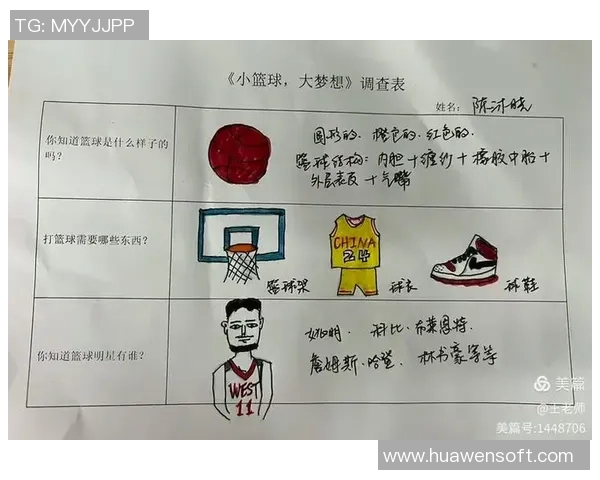 TG: MYYJJPP
《小篮球，大梦想》调查表
姓名：陈沐晓
你知道篮球是什么样子的吗？
圆形的、橙色的、红色的.
篮球结构：内胆＋缠纱＋橡胶中胎＋
外层表皮＋气嘴
打篮球需要哪些东西？
CHINA
24
篮球架
球衣
球鞋
你知道篮球明星有谁？
WEST
11
姚明、科比·布莱恩特、
詹姆斯·哈登、林书豪等等
美篇
@王老师
美篇号:1448706
www.huawensoft.com